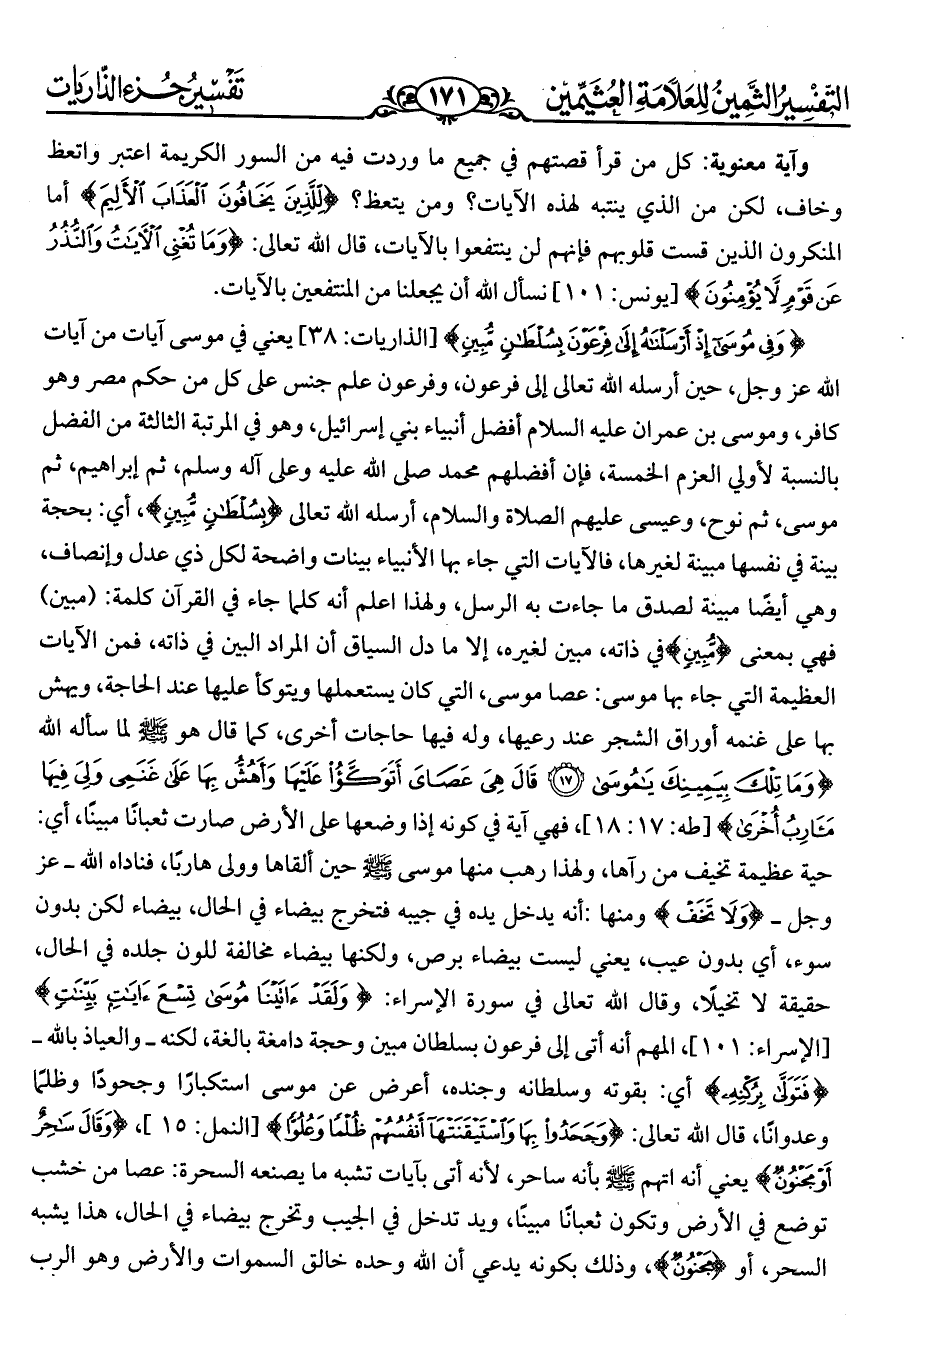 التفسير الثمين للعلامة العثيمين ١٧١ تفسير جزء الذاريات
وآية معنوية: كل من قرأ قصتهم في جميع ما وردت فيه من السور الكريمة اعتبر واتعظ
وخاف، لكن من الذي ينتبه لهذه الآيات؟ ومن يتعظ؟ ﴿لِّلَّذِينَ يَخَافُونَ ٱلْعَذَابَ ٱلْأَلِيمَ﴾ أما
المنكرون الذين قست قلوبهم فإنهم لن ينتفعوا بالآيات، قال الله تعالى: ﴿وَمَا تُغْنِى ٱلْءَايَٰتُ وَٱلنُّذُرُ
عَن قَوْمٍ لَّا يُؤْمِنُونَ﴾ [يونس: ١٠١] نسأل الله أن يجعلنا من المنتفعين بالآيات.
﴿وَفِى مُوسَىٰٓ إِذْ أَرْسَلْنَٰهُ إِلَىٰ فِرْعَوْنَ بِسُلْطَٰنٍ مُّبِينٍ﴾ [الذاريات: ٣٨] يعني في موسى آيات من آيات
الله عز وجل، حين أرسله الله تعالى إلى فرعون، وفرعون علم جنس على كل من حكم مصر وهو
كافر، وموسى بن عمران عليه السلام أفضل أنبياء بني إسرائيل، وهو في المرتبة الثالثة من الفضل
بالنسبة لأولي العزم الخمسة، فإن أفضلهم محمد صلى الله عليه وعلى آله وسلم، ثم إبراهيم، ثم
موسى، ثم نوح، وعيسى عليهم الصلاة والسلام، أرسله الله تعالى ﴿بِسُلْطَٰنٍ مُّبِينٍ﴾، أي: بحجة
بينة في نفسها مبينة لغيرها، فالآيات التي جاء بها الأنبياء بينات واضحة لكل ذي عدل وإنصاف،
وهي أيضًا مبينة لصدق ما جاءت به الرسل، ولهذا اعلم أنه كلما جاء في القرآن كلمة: (مبين)
فهي بمعنى ﴿مُّبِينٍ﴾في ذاته، مبين لغيره، إلا ما دل السياق أن المراد البين في ذاته، فمن الآيات
العظيمة التي جاء بها موسى: عصا موسى، التي كان يستعملها ويتوكأ عليها عند الحاجة، ويهش
بها على غنمه أوراق الشجر عند رعيها، وله فيها حاجات أخرى، كما قال هو ﷺ لما سأله الله
﴿وَمَا تِلْكَ بِيَمِينِكَ يَٰمُوسَىٰ ۝١٧ قَالَ هِىَ عَصَاىَ أَتَوَكَّؤُا۟ عَلَيْهَا وَأَهُشُّ بِهَا عَلَىٰ غَنَمِى وَلِىَ فِيهَا
مَـَٔارِبُ أُخْرَىٰ﴾ [طه: ١٧: ١٨]، فهي آية في كونه إذا وضعها على الأرض صارت ثعبانًا مبينًا، أي:
حية عظيمة تخيف من رآها، ولهذا رهب منها موسى ﷺ حين ألقاها وولى هاربًا، فناداه الله ـ عز
وجل ـ ﴿وَلَا تَخَفْ﴾ ومنها :أنه يدخل يده في جيبه فتخرج بيضاء في الحال، بيضاء لكن بدون
سوء، أي بدون عيب، يعني ليست بيضاء برص، ولكنها بيضاء مخالفة للون جلده في الحال،
حقيقة لا تخيلًا، وقال الله تعالى في سورة الإسراء: ﴿وَلَقَدْ ءَاتَيْنَا مُوسَىٰ تِسْعَ ءَايَٰتٍۭ بَيِّنَٰتٍ﴾
[الإسراء: ١٠١]، المهم أنه أتى إلى فرعون بسلطان مبين وحجة دامغة بالغة، لكنه ـ والعياذ بالله ـ
﴿فَتَوَلَّىٰ بِرُكْنِهِۦ﴾ أي: بقوته وسلطانه وجنده، أعرض عن موسى استكبارًا وجحودًا وظلمًا
وعدوانًا، قال الله تعالى: ﴿وَجَحَدُوا۟ بِهَا وَٱسْتَيْقَنَتْهَآ أَنفُسُهُمْ ظُلْمًا وَعُلُوًّا﴾ [النمل: ١٥ ]، ﴿وَقَالَ سَٰحِرٌ
أَوْ مَجْنُونٌ﴾ يعني أنه اتهم ﷺ بأنه ساحر، لأنه أتى بآيات تشبه ما يصنعه السحرة: عصا من خشب
توضع في الأرض وتكون ثعبانًا مبينًا، ويد تدخل في الجيب وتخرج بيضاء في الحال، هذا يشبه
السحر، أو ﴿مَجْنُونٌ﴾، وذلك بكونه يدعي أن الله وحده خالق السموات والأرض وهو الرب